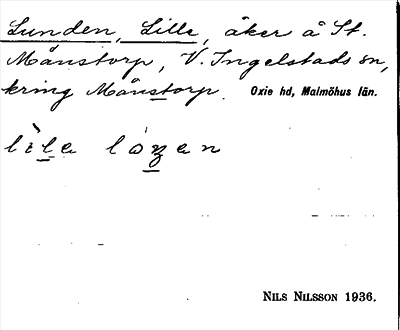 Lunden, Lille, åker å St.
Månstorp, V. Ingelstads sn,
kring Månstorp. Oxie hd, Malmöhus län.
lìla lóʒan
NILS NILSSON 1936.